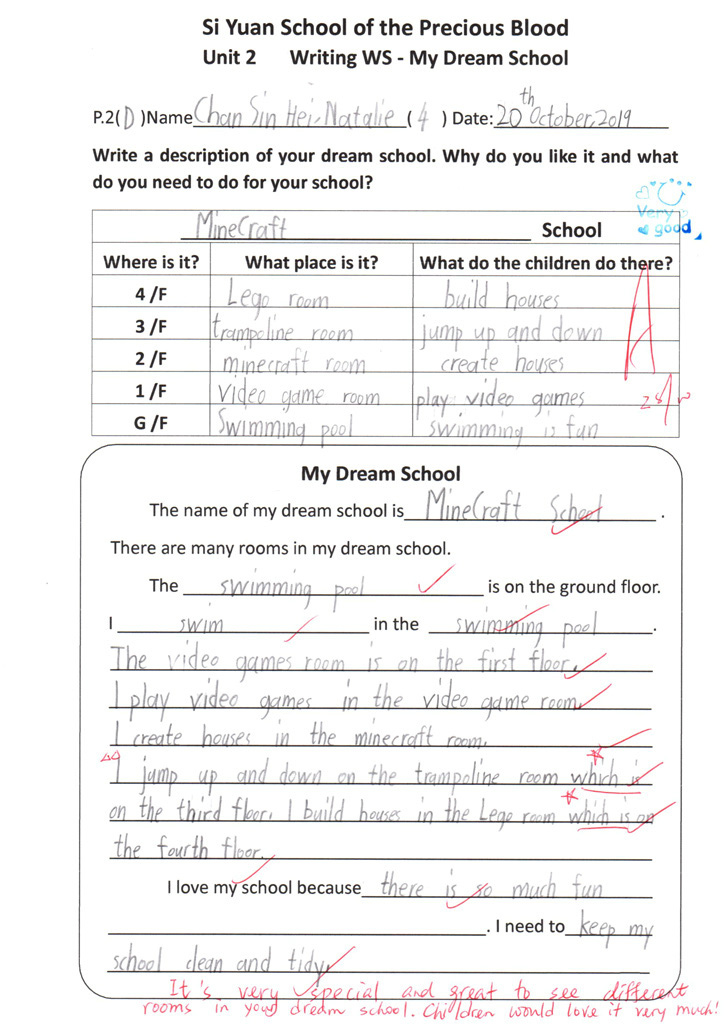 Si Yuan School of the Precious Blood
Unit 2 Writing WS - My Dream School
P.2(D)Name Chan Sin Hei, Natalie (4) Date: 20th October, 2019
Write a description of your dream school. Why do you like it and what
do you need to do for your school?
Very good
MineCraft School
Where is it? What place is it? What do the children do there?
4 /F Lego room build houses
3 /F trampoline room jump up and down
A
2 /F minecraft room create houses
1 /F video game room play video games
G /F Swimming pool swimming is fun
My Dream School
The name of my dream school is MineCraft School.
There are many rooms in my dream school.
The swimming pool is on the ground floor.
I swim in the swimming pool.
The video games room is on the first floor.
I play video games in the video game room.
I create houses in the minecraft room.
I jump up and down on the trampoline room which is
on the third floor. I build houses in the Lego room which is on
the fourth floor.
I love my school because there is so much fun
. I need to keep my
school clean and tidy.
It's very special and great to see different
rooms in your dream school. Children would love it very much!